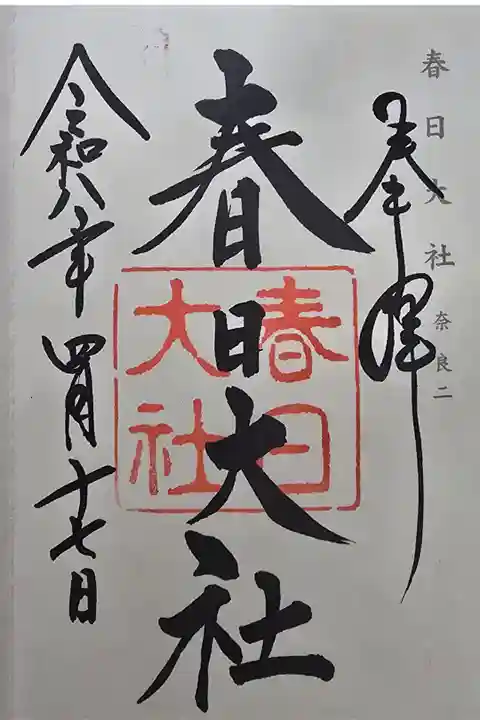 春日大社 奈良二
奉拝
春日大社
春日大社
令和八年四月十七日